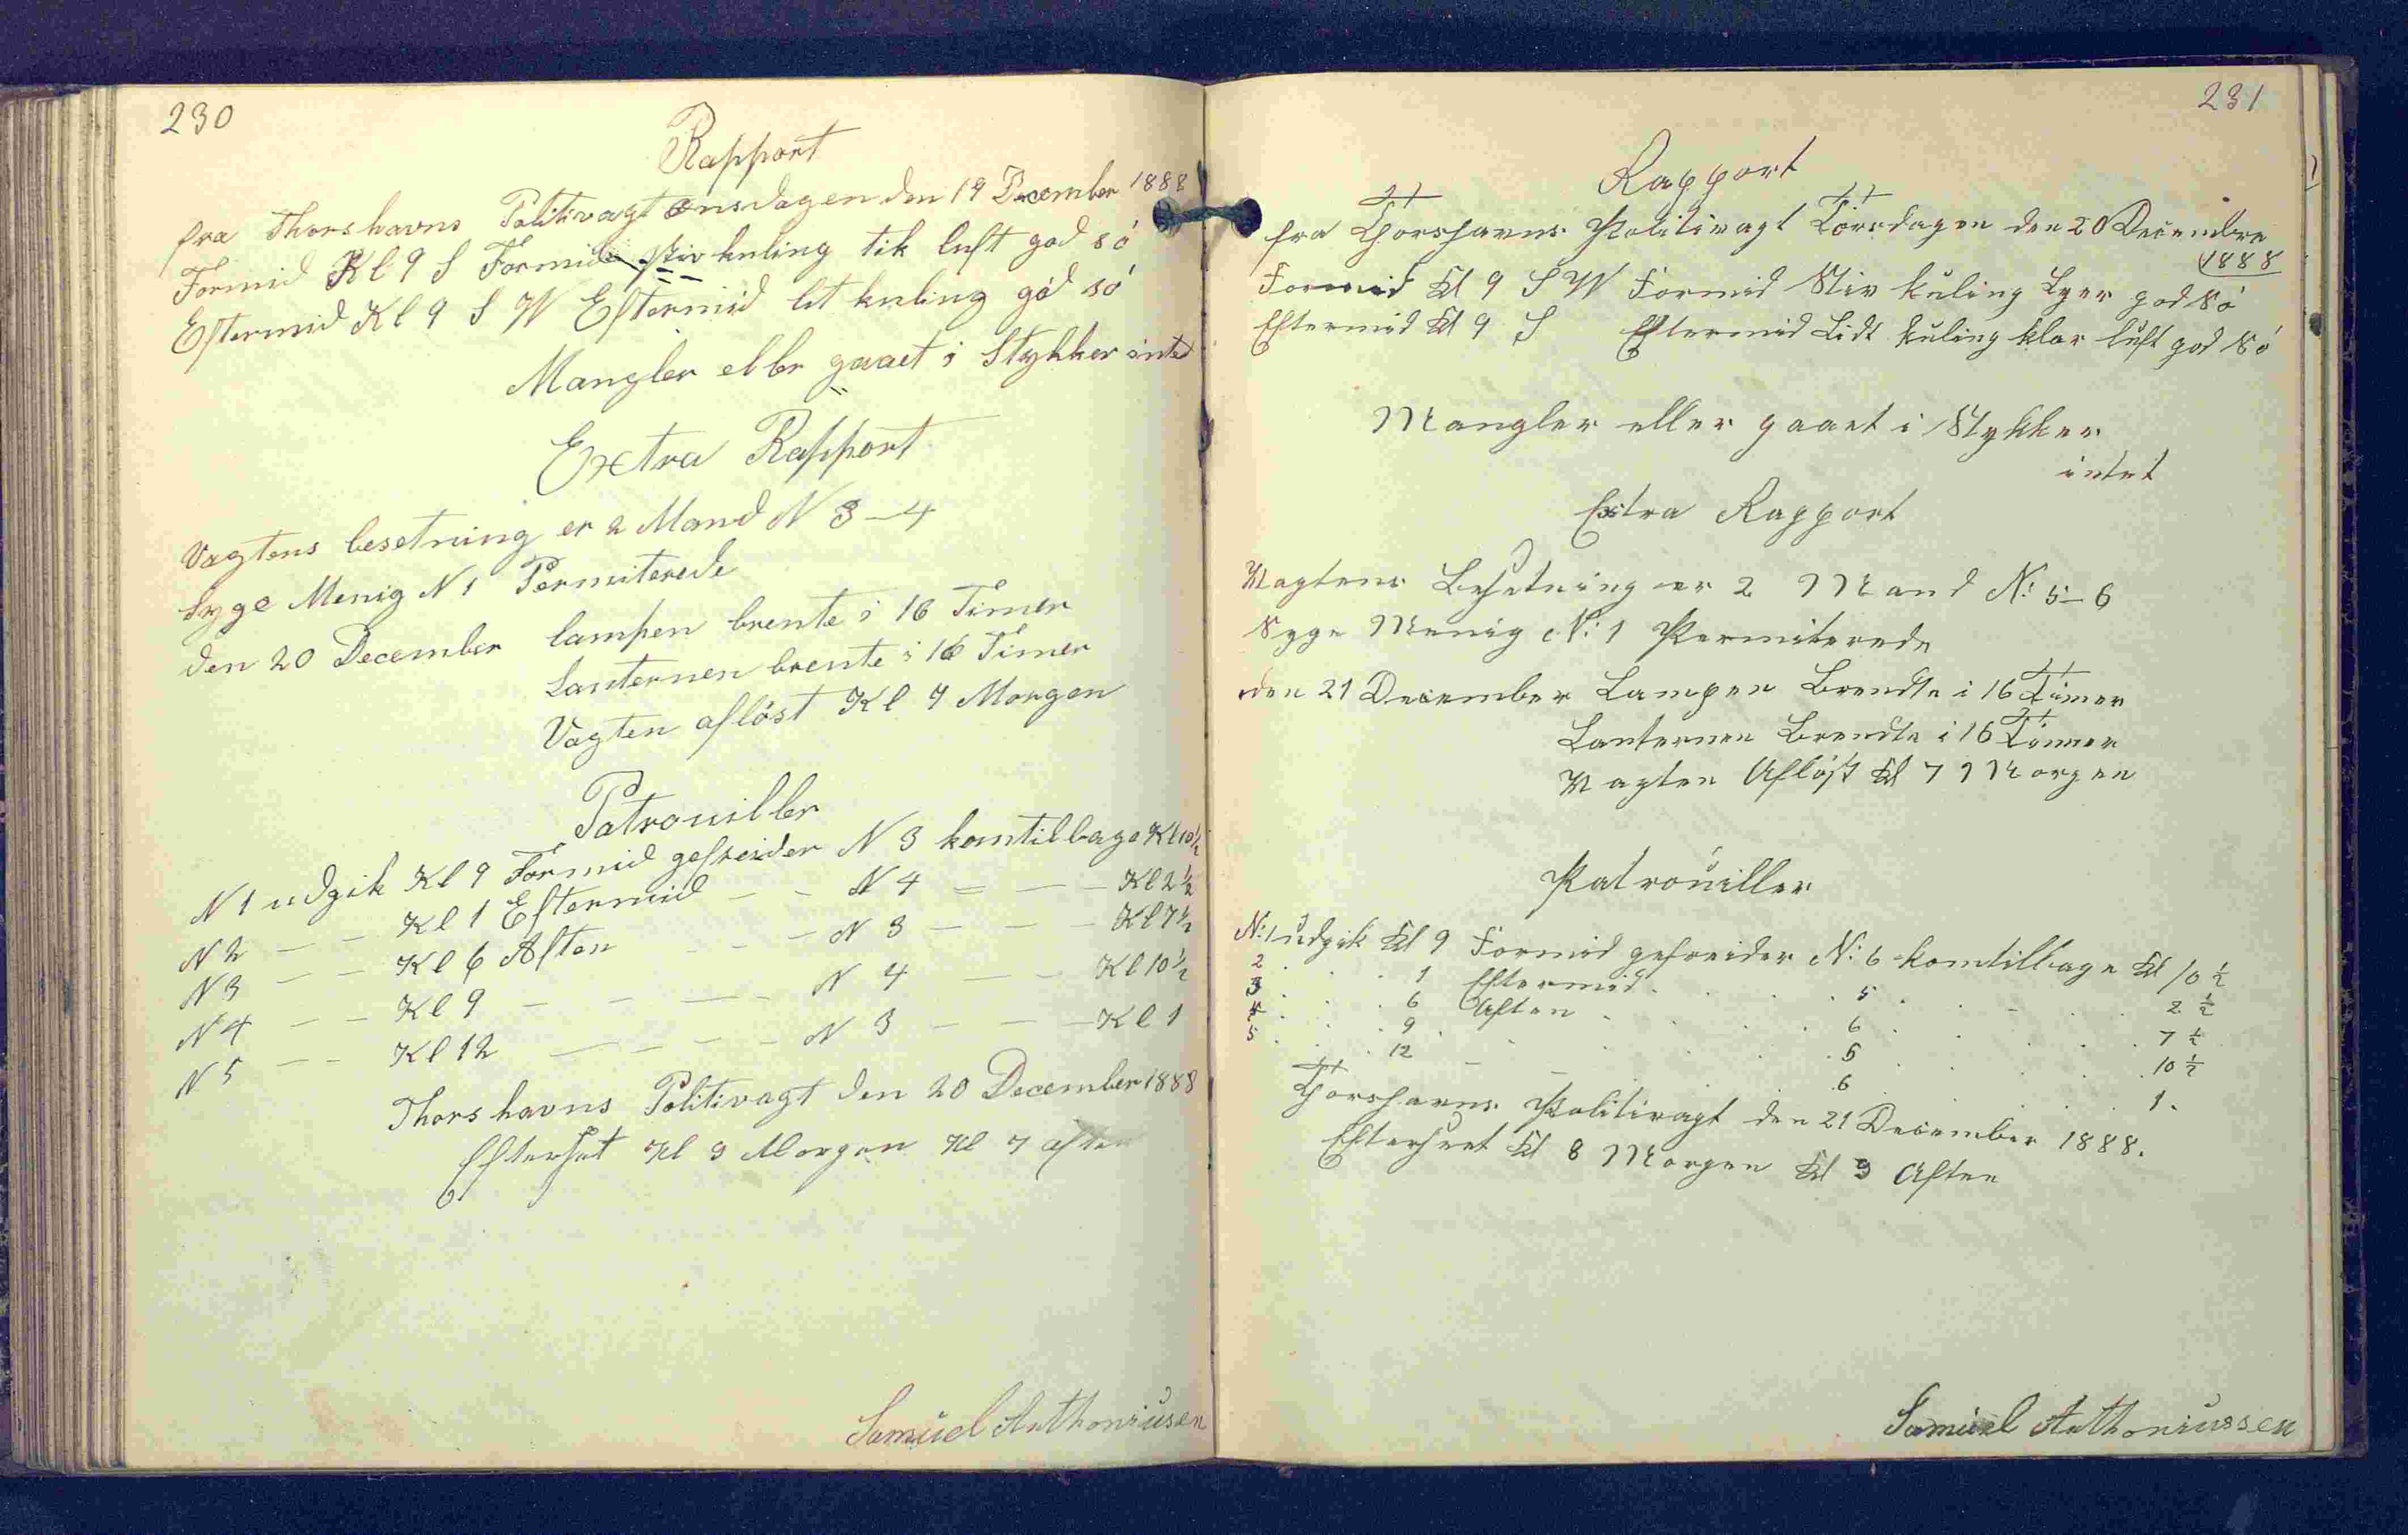 230
Rapport
fra Thorshavns Politivagt onsdagen den 19 December 1888
Formid Kl 9 S Formid stiv kuling tik luft god só
Eftermid Kl 9 S W Eftermid lit kuling gód só
Mangler eller gaaet i Stykker intet
Extra Rapport
Vagtens besetning er 2 Mand N 3-4
Syge Menig N 1 Permiterede
den 20 December lampen brente i 16 Timer
Lanternen brente i 16 Timer
Vagten aflöst Kl 7 Morgen
Patrouiller
N 1 udgik Kl 9 Formid gefreider N 3 komtilbage Kl 10 1/2
N 2 — — Kl 1 Eftermid — — N 4 — — — Kl 2 1/2
N 3 — — Kl 6 Aften — — — N 3 — — — Kl 7 1/2
N 4 — — Kl 9 — — — — N 4 — — Kl 10 1/2
N 5 — — Kl 12 — — — — N 3 — — — Kl 1
Thorshavns Politivagt den 20 December 1888
Efterset Kl 9 Morgen Kl 7 Aften
Samuel Anthoniusen
231
Rapport
fra Thorshavns Politivagt Torsdagen den 20 Decembre
1888
Formid Kl 9 S W Formid Stiv kuling Lyer god Só
Eftermid Kl 9 S Eftermid Lidt kuling klar luft god Só
Mangler eller gaaet i Stykker
intet
Extra Rapport
Vagtens Besetning er 2 Mand N: 5-6
Syge Menig N: 1 Permiterede
den 21 December Lampen Brendte i 16 Timer
Lanternen Brendte i 16 Timer
Vagten Aflöst Kl 7 Morgen
Patrouiller
N: 1 udgik Kl 9 Formid gefreider N: 6 komtilbage Kl 10 1/2
2 . . . 1 Eftermid . . . 5 . . . 2 1/2
3 . . . 6 Aften . . . 6 . . . 7 1/2
4 . . . 9 . . . 5 . . . 10 1/2
5 . . . 12 . . . 6 . . . 1.
Thorshavns Politivagt den 21 December 1888.
Efterseet Kl 8 Morgen Kl 9 Aften
Samuel Anthoniussen